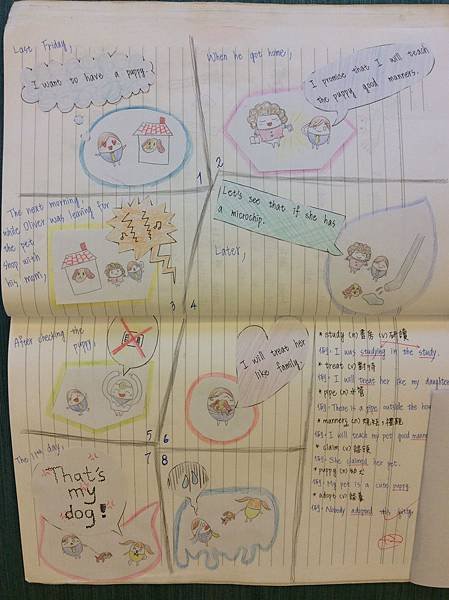 Last Friday,
I want to have a puppy.
1
When he got home,
I promise that I will teach
the puppy good manners.
2
The next morning,
while Oliver was leaving for
the pet
shop with
his mom,
3
4
Let's see that if she has
a microchip.
Later,
After checking the
puppy,
5
6
I will treat her
like family.
The 11th day,
7
That's
my
dog!
8
* study (n) 書房 (v) 研讀
例: I was studying in the study.
* treat (v) 對待
例: I will treat her like my daughter
* pipe (n) 水管
例: There is a pipe outside the
* manners (n) 規矩
例: I will teach my pet good
* claim (v) 認領
例: She claimed her pet.
* puppy (n) 幼犬
例: My pet is a cute puppy.
* adopt (v) 認養
例: Nobody adopted this kitty.